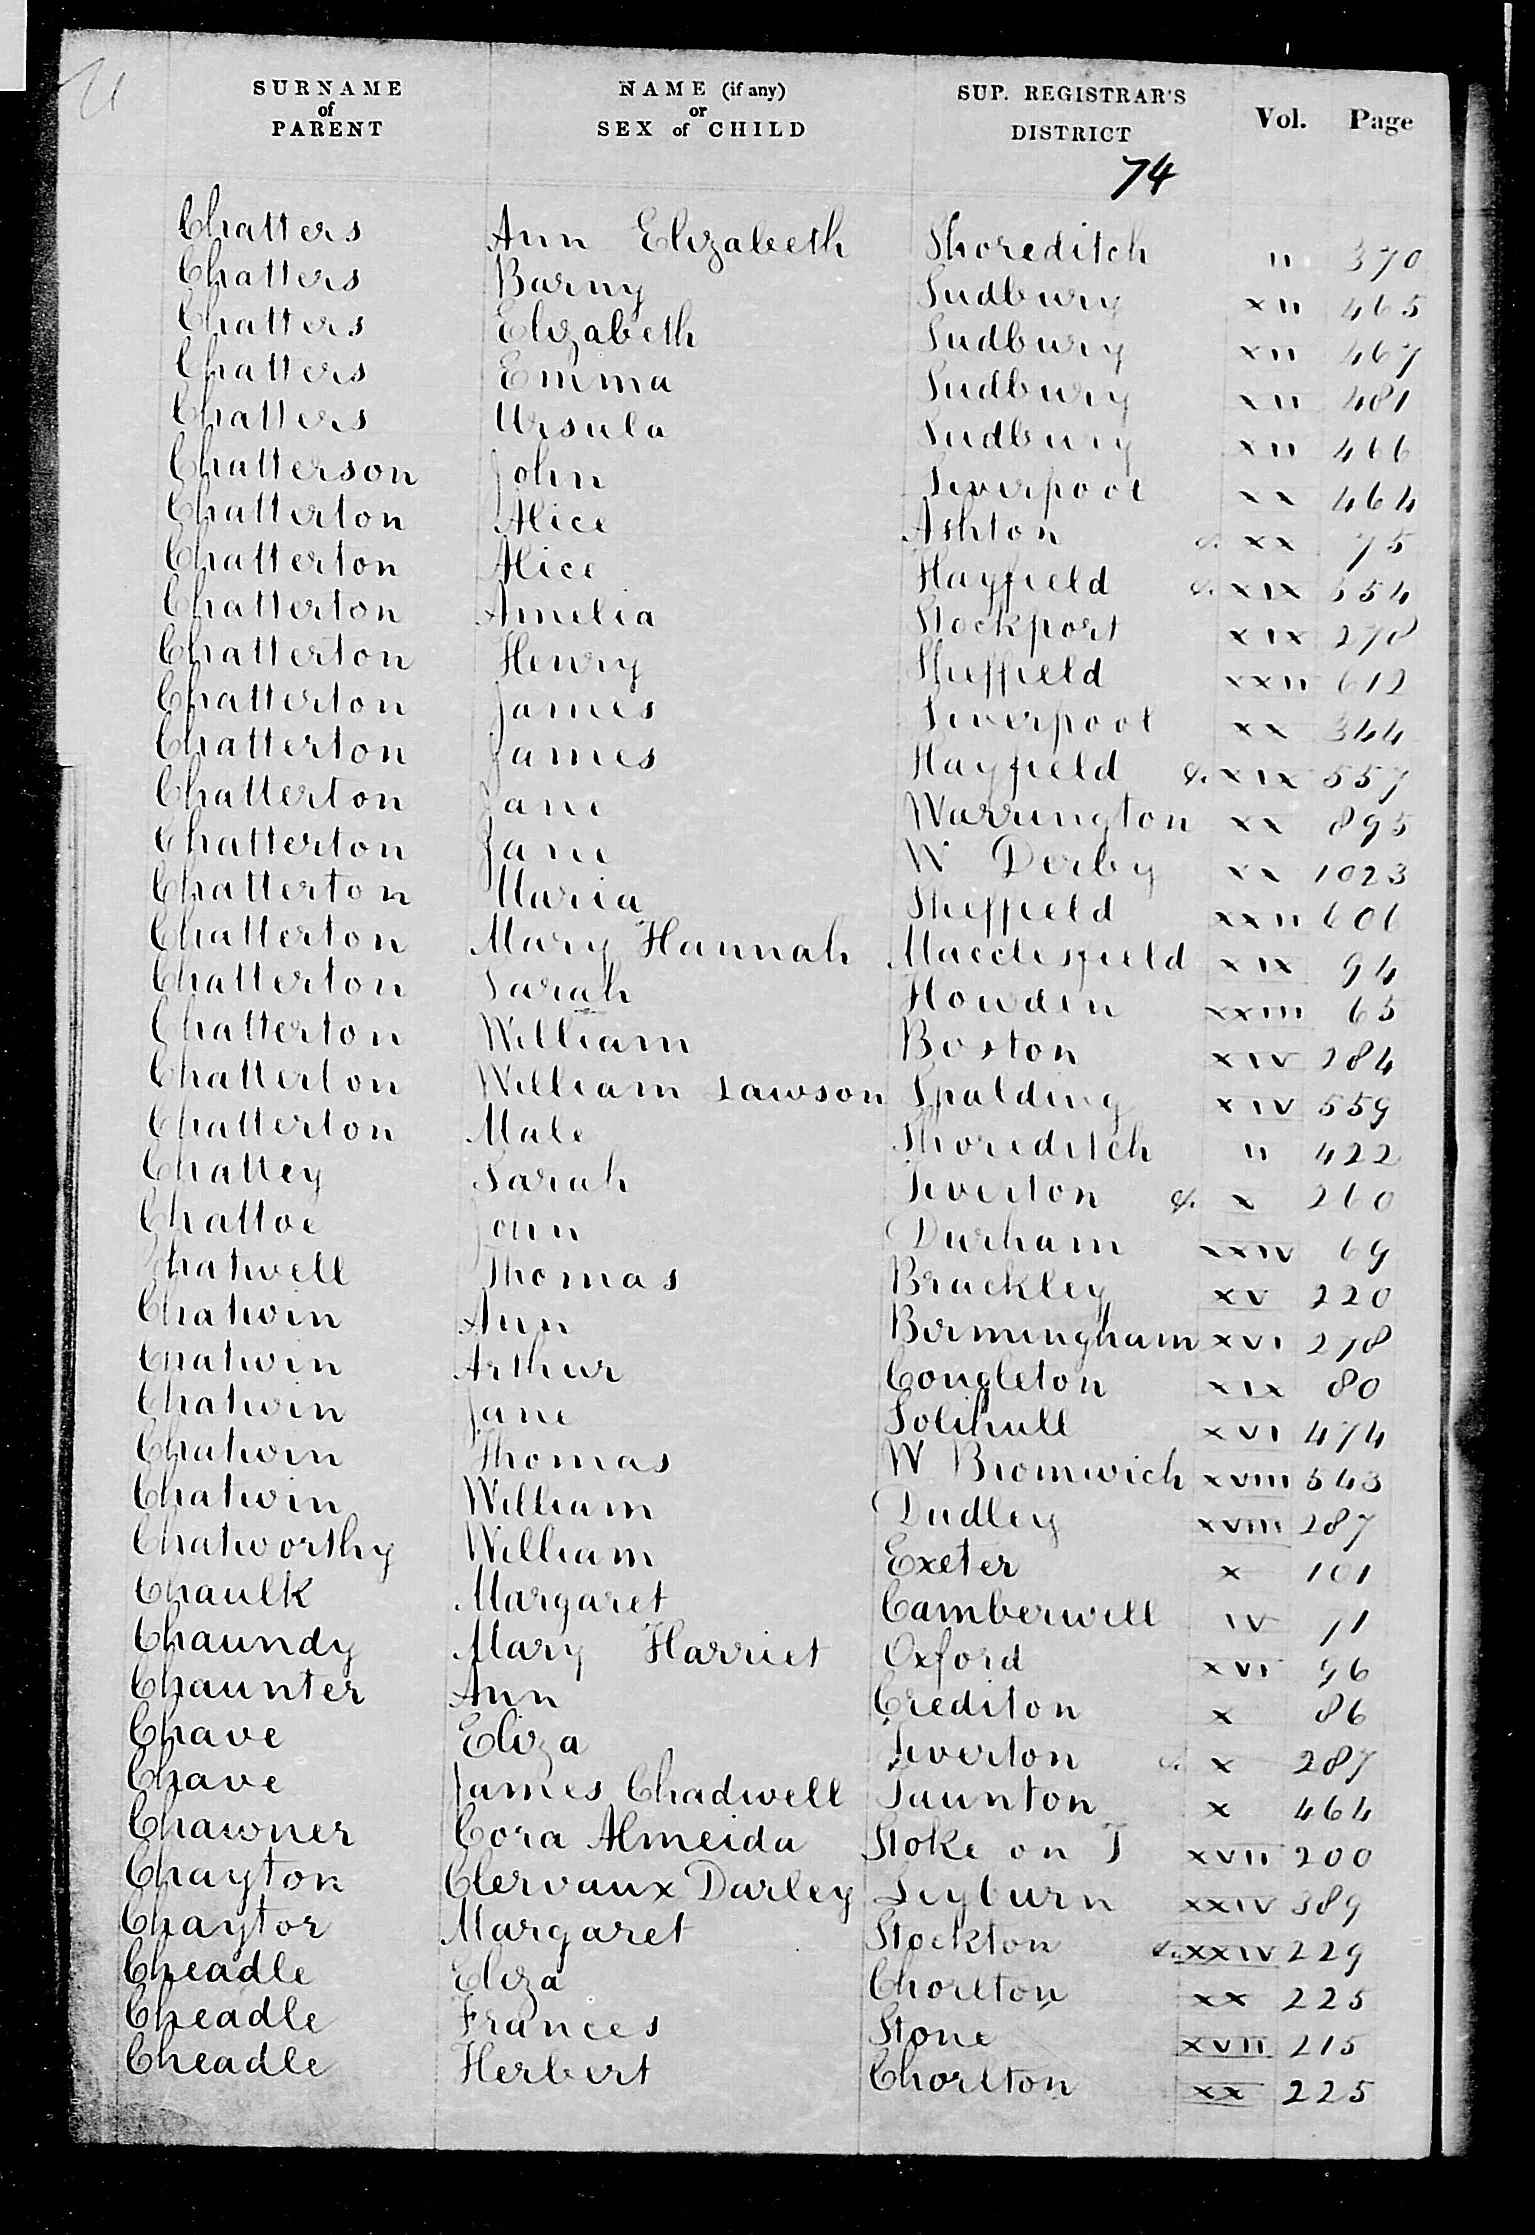 SURNAME of PARENT NAME (if any) or SEX of CHILD SUP. REGISTRAR'S DISTRICT Vol. Page
74
Chatters Ann Elizabeth Shoreditch II 370
Chatters Barny Sudbury XII 465
Chatters Elizabeth Sudbury XII 467
Chatters Emma Sudbury XII 481
Chatters Ursula Sudbury XII 466
Chatterson John Liverpool XX 464
Chatterton Alice Ashton &. XX 75
Chatterton Alice Hayfield &. XIX 554
Chatterton Amelia Stockport XIX 278
Chatterton Henry Sheffield XXII 612
Chatterton James Liverpool XX 344
Chatterton James Hayfield &. XIX 557
Chatterton Jane Warrington XX 895
Chatterton Jane W Derby XX 1023
Chatterton Maria Sheffield XXII 606
Chatterton Mary Hannah Macclesfield XIX 94
Chatterton Sarah Howden XXIII 65
Chatterton William Boston XIV 284
Chatterton William Lawson Spalding XIV 559
Chatterton Male Shoreditch II 422
Chattey Sarah Tiverton &. X 260
Chattoe Jann Durham XXIV 69
Chatwell Thomas Brackley XV 220
Chatwin Ann Birmingham XVI 278
Chatwin Arthur Congleton XIX 80
Chatwin Jane Solihull XVI 474
Chatwin Thomas W Bromwich XVIII 543
Chatwin William Dudley XVIII 287
Chatworthy William Exeter X 101
Chaulk Margaret Camberwell IV 71
Chaundy Mary Harriet Oxford XVI 96
Chaunter Ann Crediton X 86
Chave Eliza Tiverton &. X 287
Chave James Chadwell Taunton X 464
Chawner Cora Almeida Stoke on T XVII 200
Chaytor Clervaux Darley Leyburn XXIV 389
Chaytor Margaret Stockton &. XXIV 229
Cheadle Eliza Chorlton XX 225
Cheadle Frances Stone XVII 215
Cheadle Herbert Chorlton XX 225